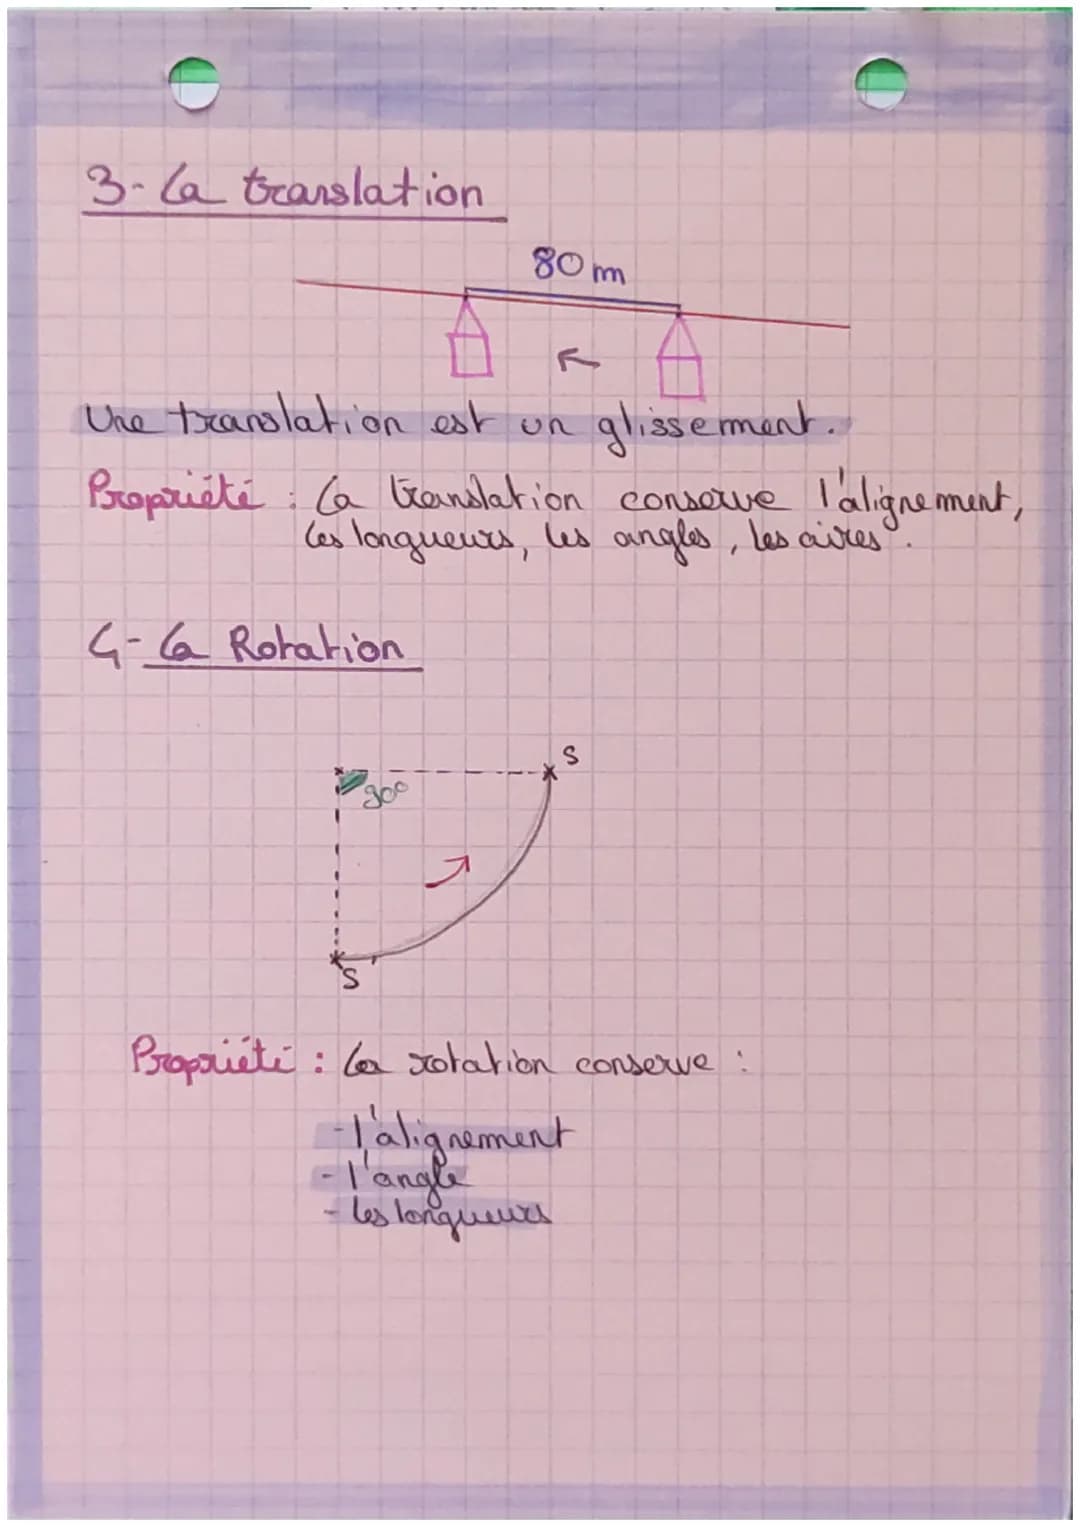 3- La translation
80 m
Une translation est un glissement.
Propriété : La translation conserve l'alignement,
les longueurs, les angles, les aires.
4- La Rotation
S
90°
S
Propriété : La rotation conserve :
- l'alignement
- l'angle
- les longueurs